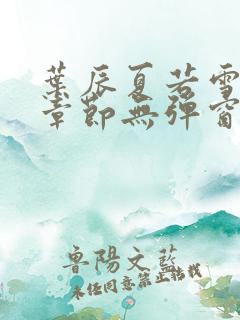 葉辰夏若雪
章節無彈窗
魯陽文藍
未經同意禁止轉載